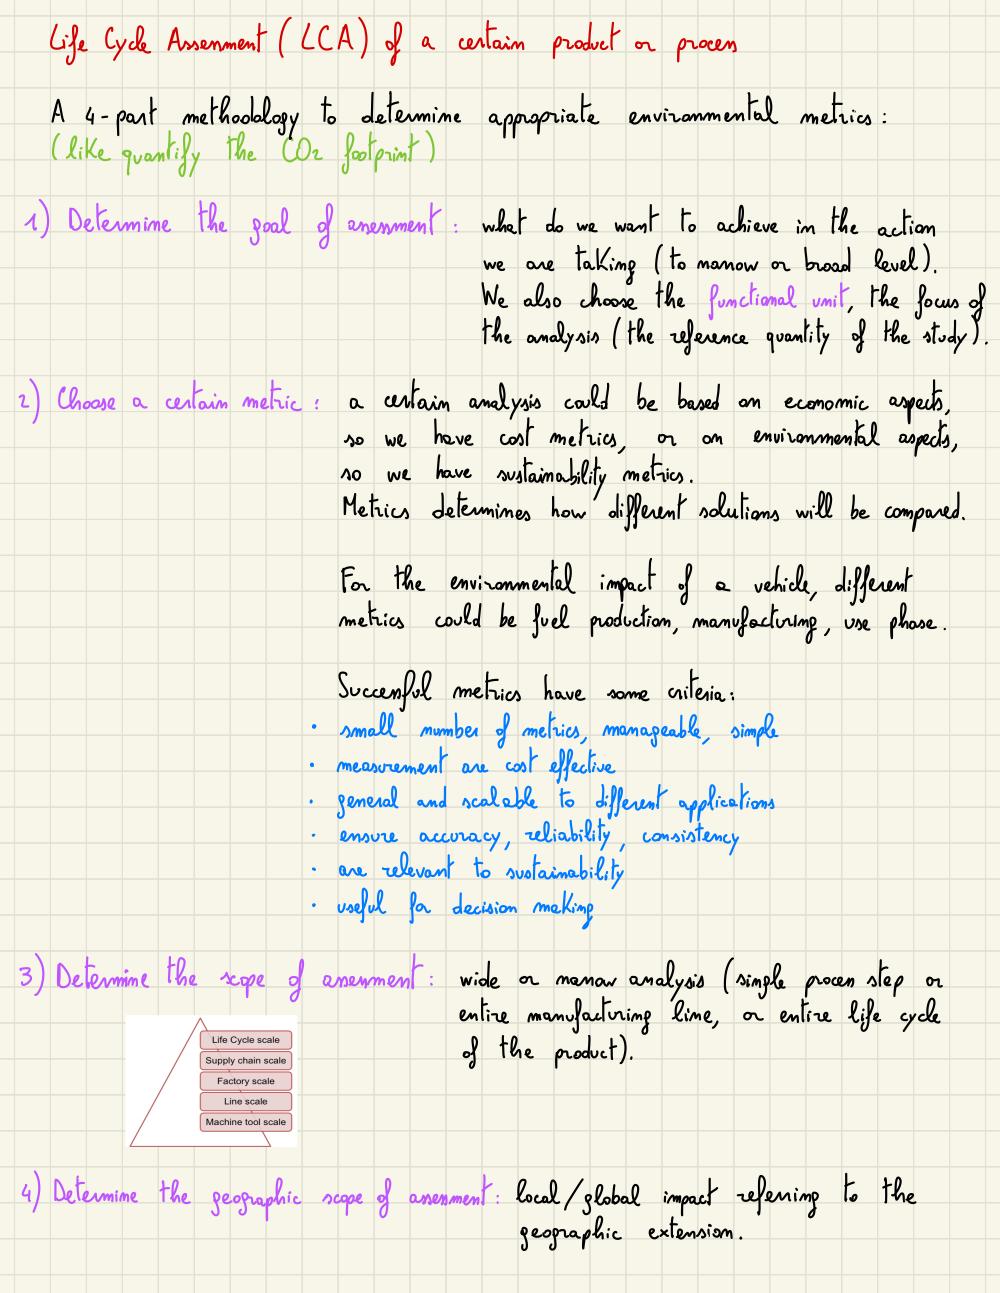 Life Cycle Assessment (LCA) of a certain product or process
A 4-part methodology to determine appropriate environmental metrics:
(like quantify the CO2 footprint)
1) Determine the goal of assessment: what do we want to achieve in the action
we are taking (to narrow or broad level).
We also choose the functional unit, the focus of
the analysis (the reference quantity of the study).
2) Choose a certain metric: a certain analysis could be based on economic aspects,
so we have cost metrics, or on environmental aspects,
so we have sustainability metrics.
Metrics determines how different solutions will be compared.
For the environmental impact of a vehicle, different
metrics could be fuel production, manufacturing, use phase.
Successful metrics have some criteria:
· small number of metrics, manageable, simple
· measurement are cost effective
· general and scalable to different applications
· ensure accuracy, reliability, consistency
· are relevant to sustainability
· useful for decision making
3) Determine the scope of assessment: wide or narrow analysis (single process step or
entire manufacturing line, or entire life cycle
of the product).
Life Cycle scale
Supply chain scale
Factory scale
Line scale
Machine tool scale
4) Determine the geographic scope of assessment: local/global impact referring to the
geographic extension.